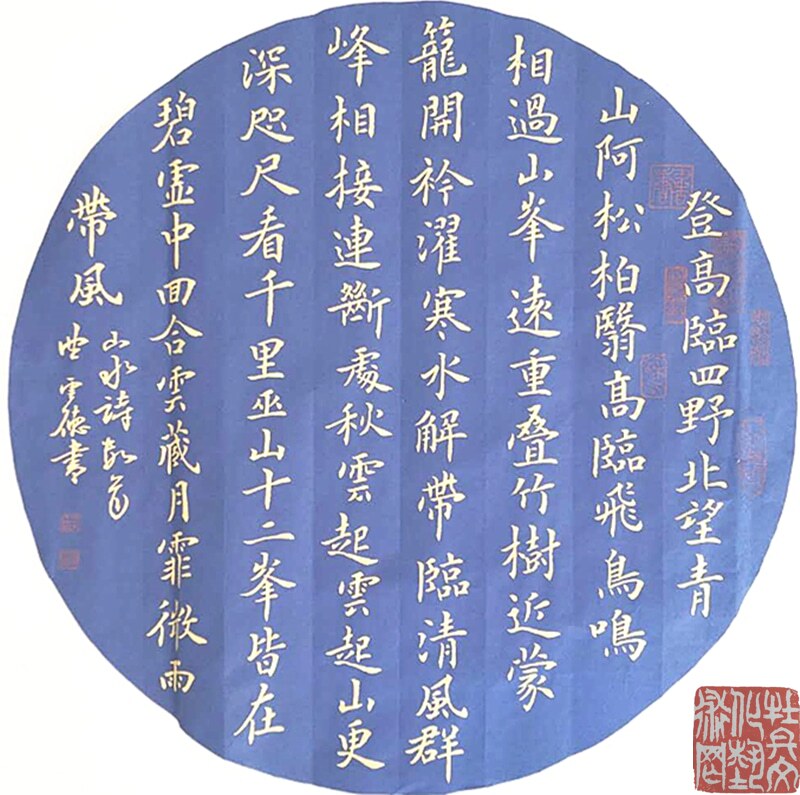 登高臨四野北望青
山阿松柏翳高臨飛鳥鳴
相過山峯遠重叠竹樹近蒙
籠開衿濯寒水解帶臨清風群
峰相接連斷處秋雲起雲起山更
深咫尺看千里巫山十二峯皆在
碧虛中回合雲藏月霏微雨
帶風
山水詩
雲德書